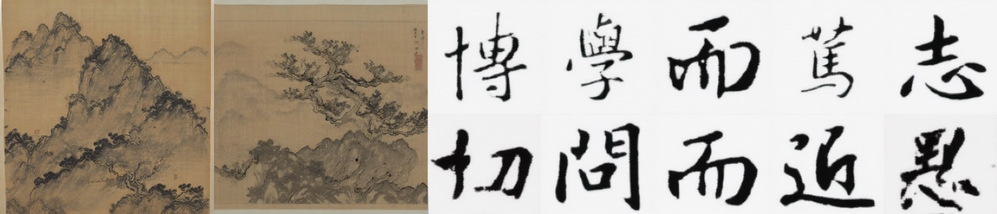 博學而篤志
切問而近